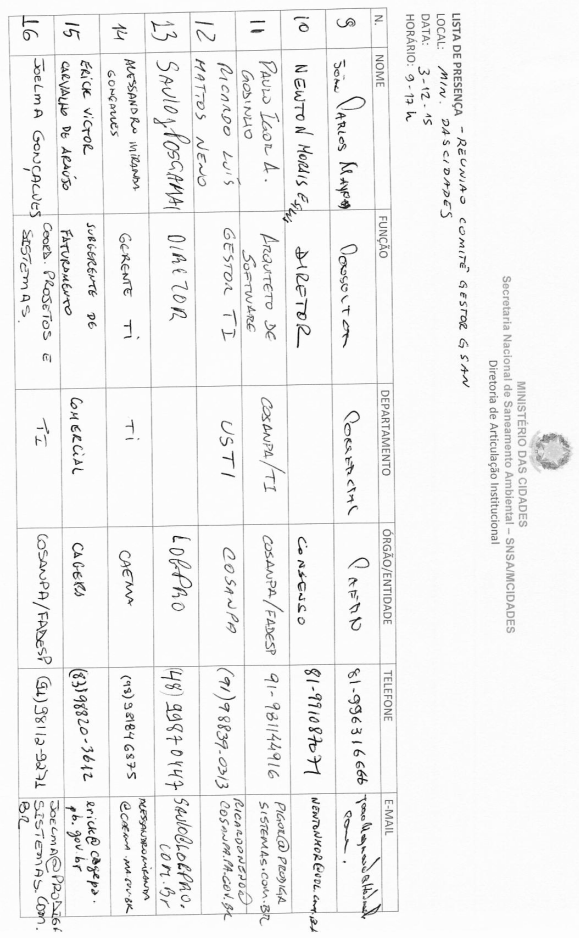 MINISTÉRIO DAS CIDADES
Secretaria Nacional de Saneamento Ambiental – SNSA/MCIDADES
Diretoria de Articulação Institucional
LISTA DE PRESENÇA – REUNIÃO COMITÊ GESTOR GSAN
LOCAL: MIN. DAS CIDADES
DATA: 3-12-15
HORÁRIO: 9-17 h
N. NOME FUNÇÃO DEPARTAMENTO ÓRGÃO/ENTIDADE TELEFONE E-MAIL
9 CARLOS 81-996316666
10 NEWTON MORAIS E DIRETOR CONSENSO 81-991087071
11 PAULO IGOR A. GODINHO ARQUITETO DE SOFTWARE COSANPA/TI COSANPA/FADESP 91-981144916 PIGOR@PRODIGASISTEMAS.COM.BR
12 RICARDO LUÍS MATTOS NENO GESTOR TI USTI COSANPA (91)98839-0313 RICARDONENO@COSANPA.PA.GOV.BR
13 SAULO DIRETOR (48) 9987-0447
14 ALESSANDRO MIRANDA GONÇALVES GERENTE TI TI CAEMA (98)98846875 @CAEMA.MA.GOV.BR
15 ERICK VICTOR CARVALHO DE ARAÚJO SURGERENTE DE FATURAMENTO COMERCIAL CAGEPA (83)98820-3612 erick@cagepa.pb.gov.br
16 JOELMA GONÇALVES COORD. PROJETOS E SISTEMAS. TI COSANPA/FADESP (91)98112-9271 JOELMA@PRODIGASISTEMAS.COM.BR